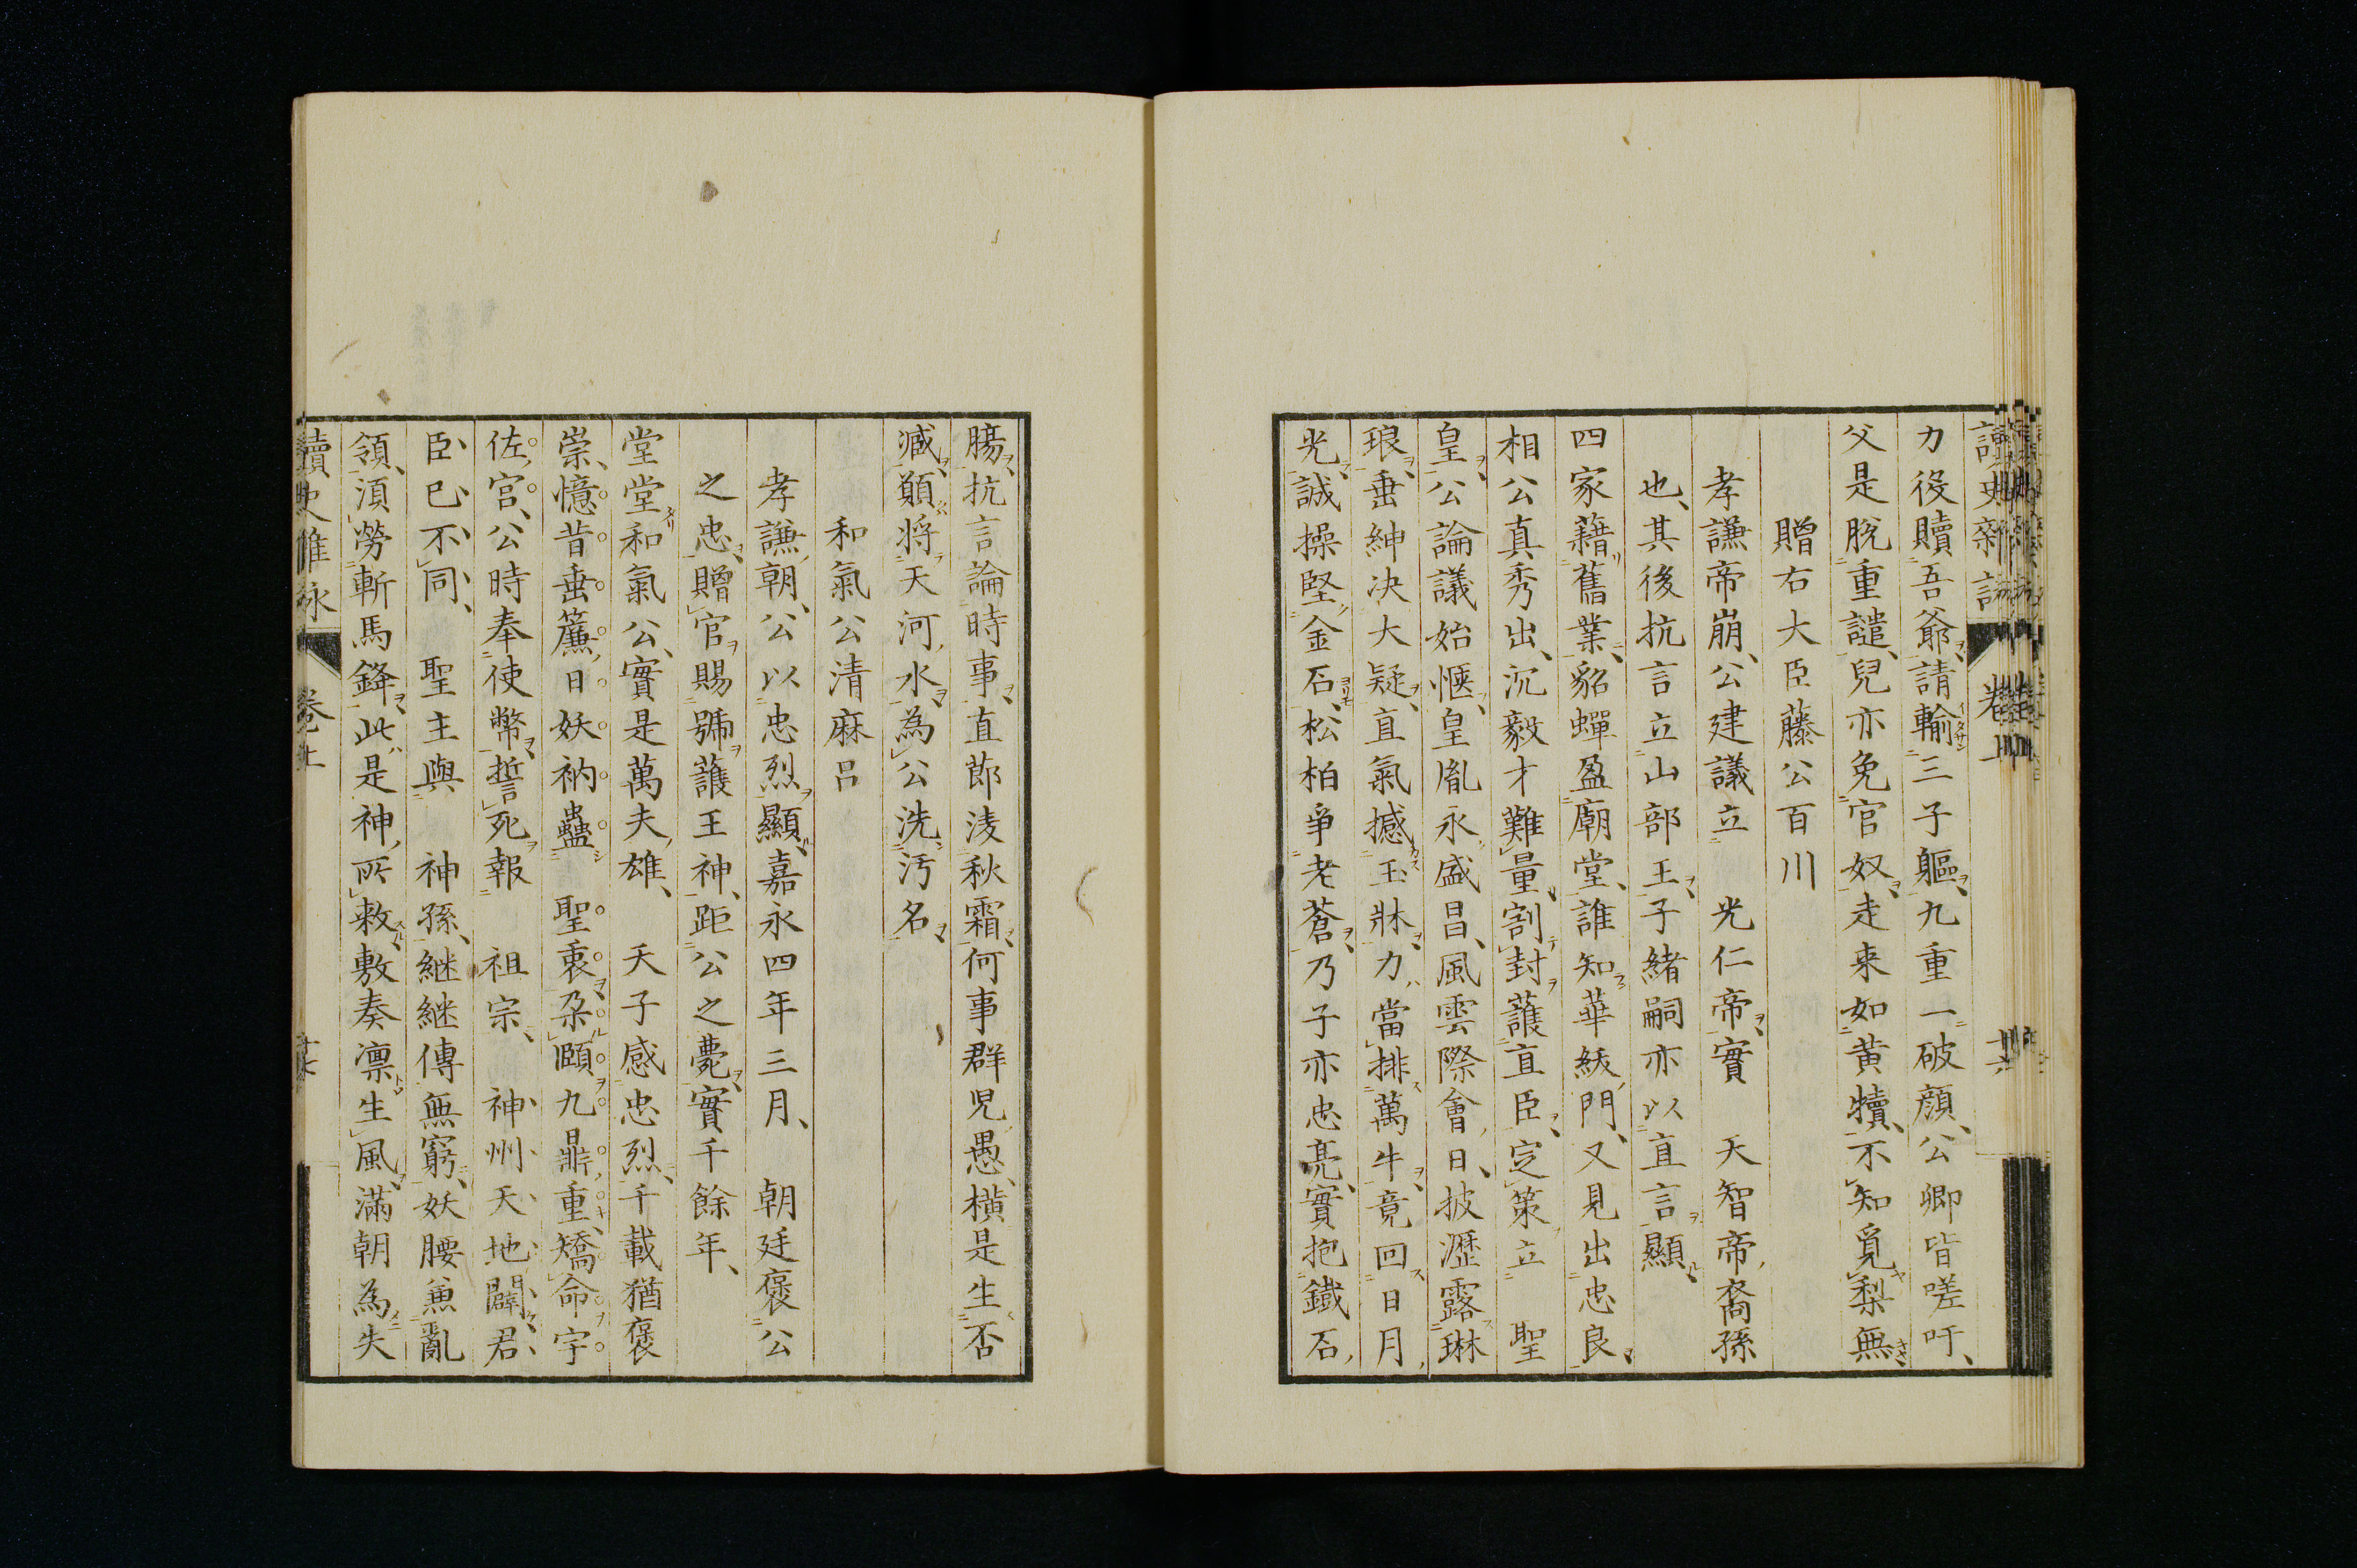 力役贖吾爺請輸三子軀九重一破顔公卿皆嗟吁
父是脫重譴兒亦免官奴走来如黄犢不知覓梨無
贈右大臣藤公百川
孝謙帝崩公建議立　光仁帝實　天智帝裔孫
也其後抗言立山部王子緒嗣亦以直言顯
四家藉舊業貂蟬盈廟堂誰知華綉門又見出忠良
相公真秀出沉毅才難量割封護直臣定策立　聖
皇公論議始愜皇胤永盛昌風雲際會日披瀝露琳
琅垂紳决大疑直氣撼玉牀力當排萬牛竟回日月
光誠操堅金石松柏爭老蒼乃子亦忠亮實抱鐵石
腸抗言論時事直節凌秋霜何事群児愚横是生否
臧願将天河水為公洗汚名
和氣公清麻呂
孝謙朝公以忠烈顯嘉永四年三月　朝廷褒公
之忠贈官賜號護王神距公之薨實千餘年
堂堂和氣公實是萬夫雄　天子感忠烈千載猶褒
崇憶昔垂簾日妖衲蠱　聖衷朶頤九鼎重矯命宇
佐宮公時奉使幣誓死報　祖宗　神州天地闢君
臣已不同　聖主與　神孫継継傳無窮妖腰兼亂
領湏勞斬馬鋒此是神所敕敷奏凛生風滿朝為失
卷上